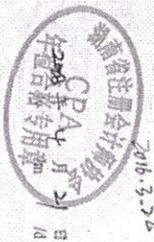 湖南省注册会计师协会
CPA
年检合格专用章
月 21 日
2016-3-22